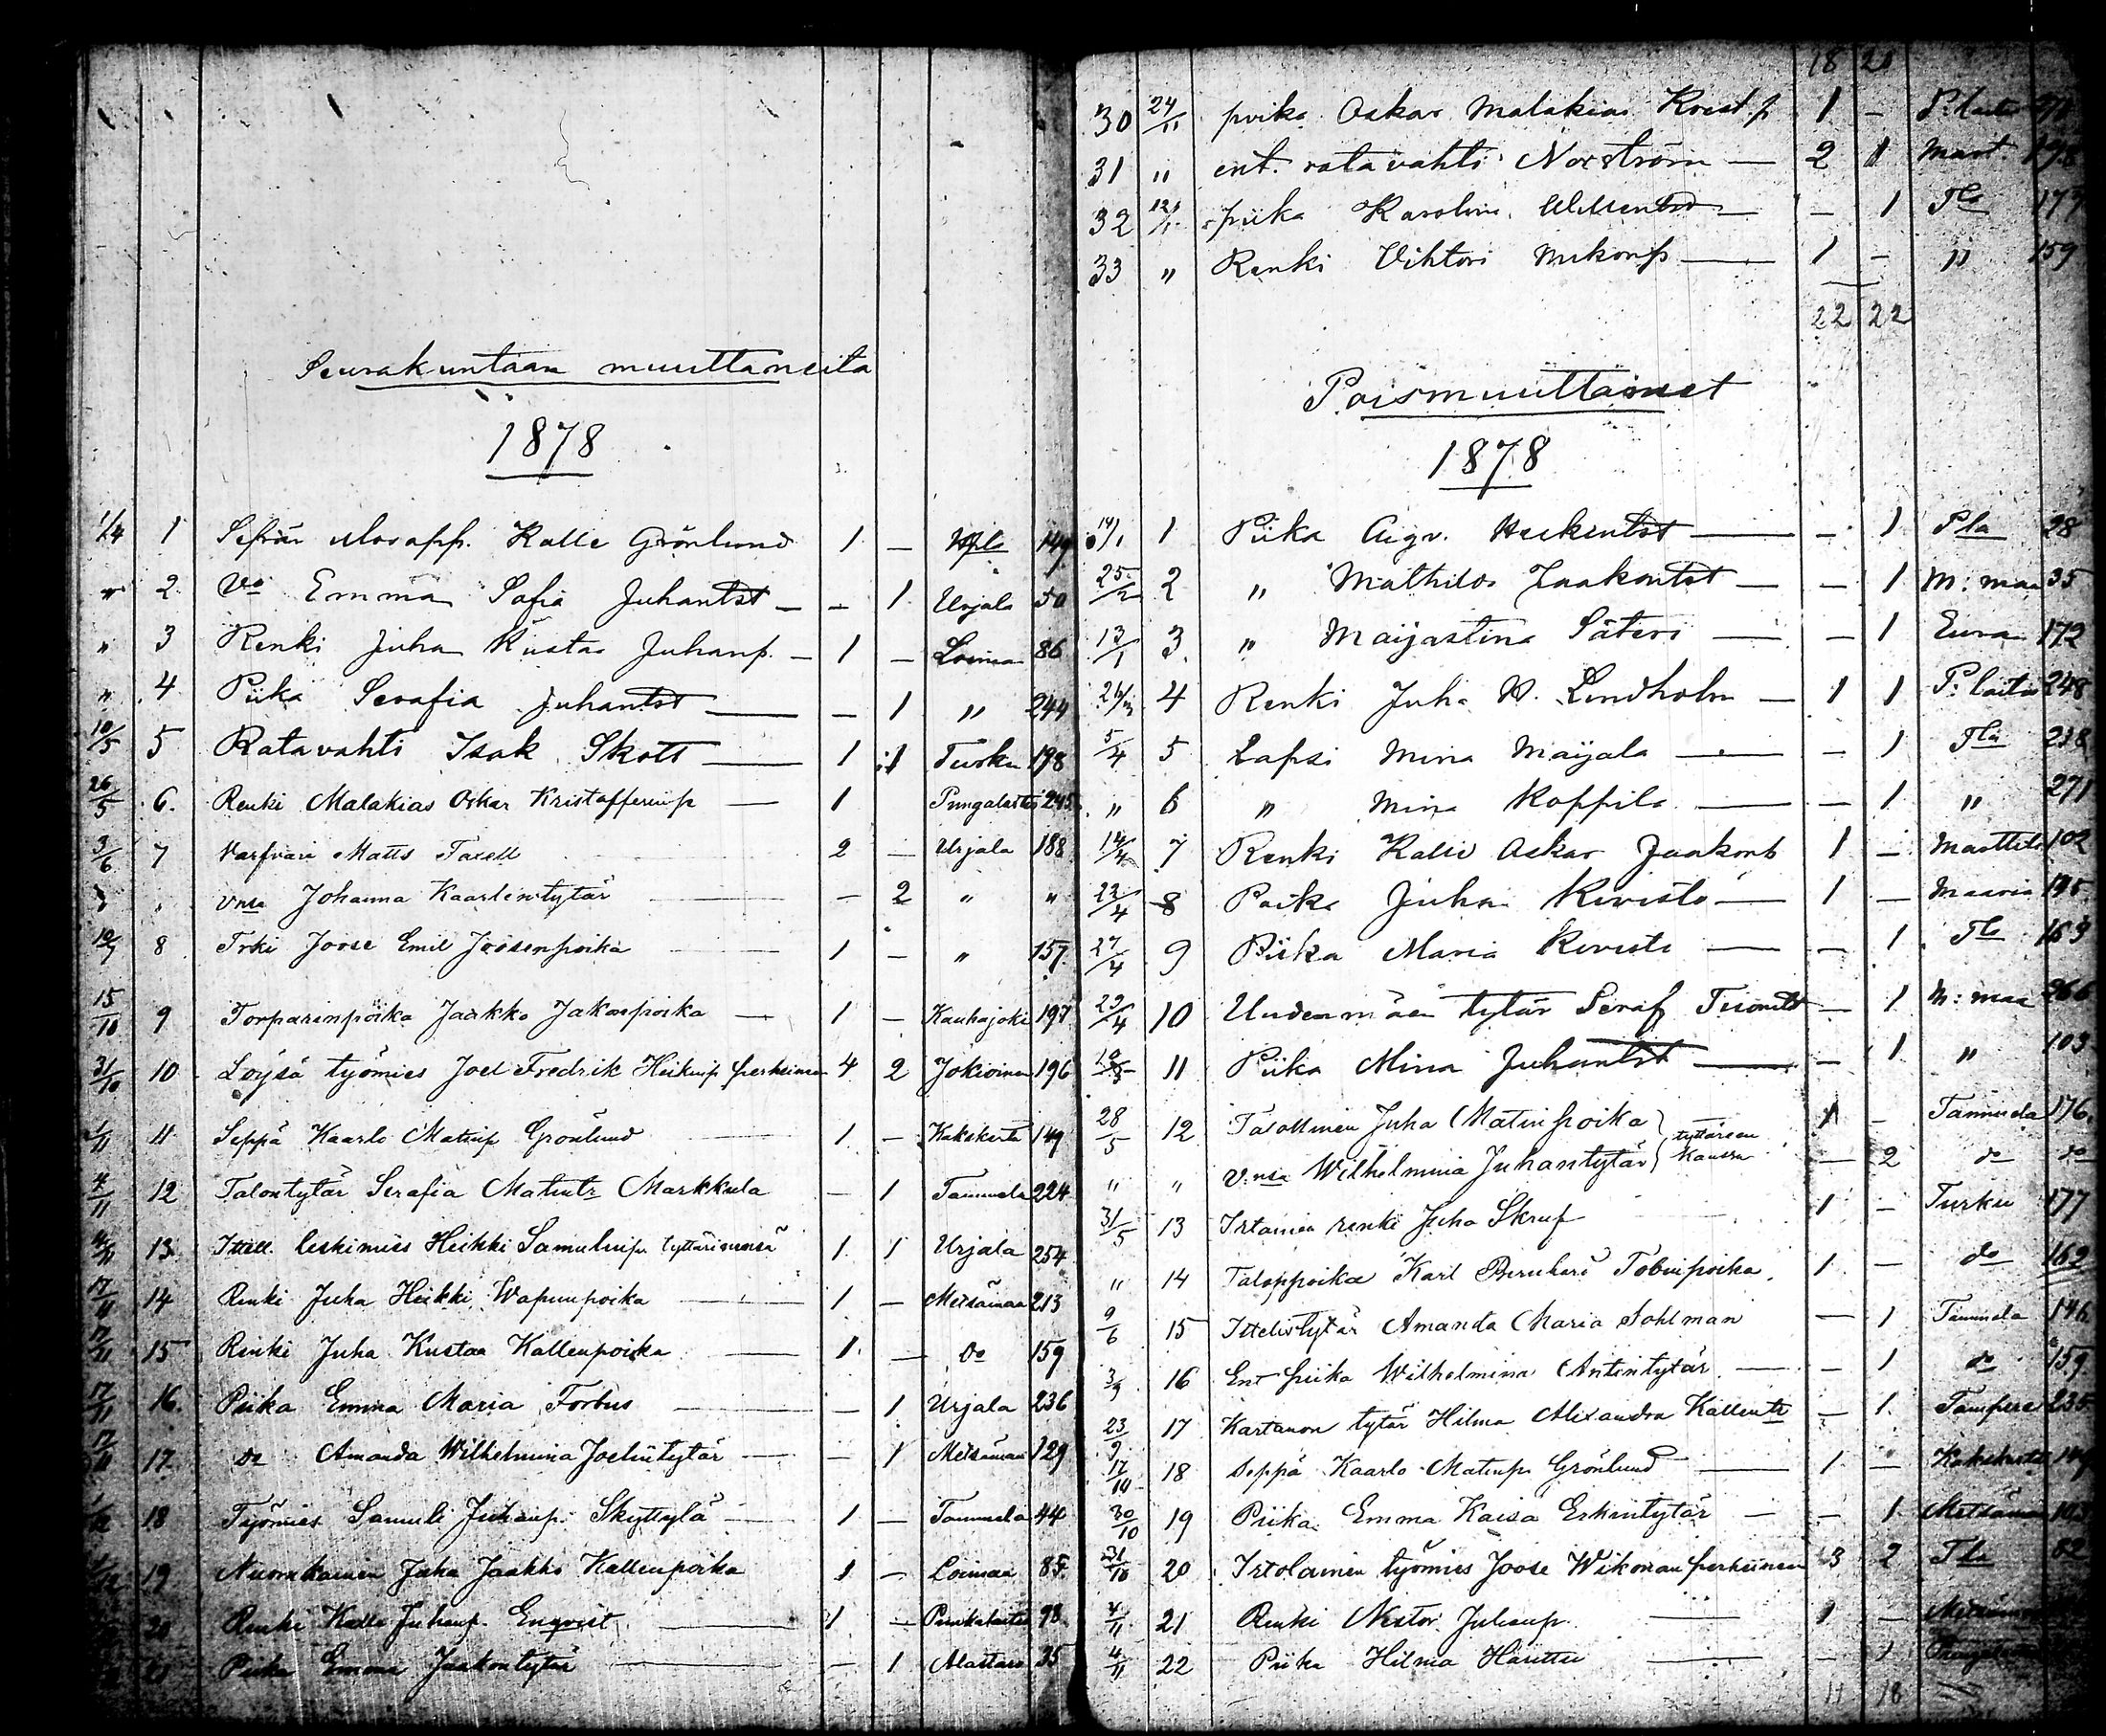 Seurakuntaan muuttaneita
1878
1/4 1 Kalle Grönlund 1 — 149
" 2 Emma Sofia Juhantst — — 1 Urjala 50
" 3 Renki Juha Kustaa Juhanp. — 1 — Loimaa 86
" 4 Piika Serafia Juhantst — — 1 " 244
10/5 5 Ratavahti Isak Skott — 1 1 Turku 198
26/5 6. Renki Malakias Oskar Kristofferinp — 1 Pungalaitio 245
3/6 7 Matts Taxell 2 — Urjala 188
" vmsa Johanna Kaarlentytär — — 2 " "
8 Joose Emil Joosenpoika — 1 — " 157
15/10 9 Torparinpoika Jaakko Jakonpoika — 1 — Kauhajoki 197
31/10 10 Löysä työmies Joel Fredrik Heikinp perheineen 4 2 Jokioinen 196
1/11 11 Seppä Kaarlo Matinp Grönlund 1 — Kakskerta 149
4/11 12 Talontytär Serafia Matintr Markkula — 1 Tammela 224
4/11 13 Ittell. leskimies Heikki Samulinp tyttärinensä 1 1 Urjala 254
17/11 14 Renki Juha Heikki Wapunpoika — 1 — Metsämaa 213
17/11 15 Renki Juha Kustaa Kallenpoika — 1 — Do 159
17/11 16. Piika Emma Maria Forbus — — 1 Urjala 236
17/11 17 do Amanda Wilhelmina Joelintytär — — 1 Metsämaa 129
18 Työmies Samuli Juhanp. Skyttylä — 1 — Tammela 44
19 Nuorukainen Juha Jaakko Kallenpoika 1 — Loimaa 85
20 Renki Kalle Juhanp. Enqvist — 1 — Punkalaitio 98
Piika Emma Jaakontytär — — 1 Alastaro 35
18 21
30 24/11 poika Oskar Malakias Krist.p 1 — P:laitio
31 " ent. ratavahti Norström — 2 1 Mart. 198
32 piika Karolina — — 1 Tla 177
33 " Renki Vihtori Mikonp — 1 — " 159
22 22
Poismuuttaneet
1878
14/1 1 Piika Heikintst — — 1 Pla 28
25/2 2 " Mathilda Jaakontst — — 1 M:maa 35
13/1 3 " Maijastina Säteri — — 1 Eura 172
4 Renki Juha W. Lindholm — 1 1 P:laitio 248
5/4 5 Lapsi Mina Maijala — — 1 Tla 218
" 6 " Mina Koppila — — 1 " 271
14/4 7 Renki Kalle Oskar Jaakonp 1 — Marttila 102
22/4 8 Poika Juha Kivistö — 1 — Maaria 195
27/4 9 Piika Maria Kivistö — — 1 Tla 163
29/4 10 Uudenmäen tytär Seraf Tuomtst — 1 M:maa 266
11 Piika Mina Juhantst — — 1 " 103
28/5 12 Talollinen Juha Matinpoika } — 1 — Tammela 176
" " v:nsa Wilhelmina Juhantytär } tyttären kanssa — 2 do do
31/5 13 Irtainen renki Juha Skruf 1 — Turku 177
" 14 Talonpoika Karl Bernhard Tobiinpoika 1 — do 162
9/6 15 Ittellistytär Amanda Maria Sohlman — 1 Tammela 146
3/9 16 Ent piika Wilhelmina Antintytär — — 1 do 159
23/9 17 Kartanon tytär Hilma Alexandra Kallentr — 1 Tampere 235
17/10 18 Seppä Kaarlo Matinp Grönlund — 1 — Kakskerta 149
30/10 19 Piika Emma Kaisa Erkintytär — — 1 Metsämaa
31/10 20 Irtolainen työmies Joose Wikman perheineen 3 2 Tla 62
4/11 21 Renki Nestor Juhanp. — 1 — Metsämaa
4/11 22 Piika Hilma — — 1
11 18